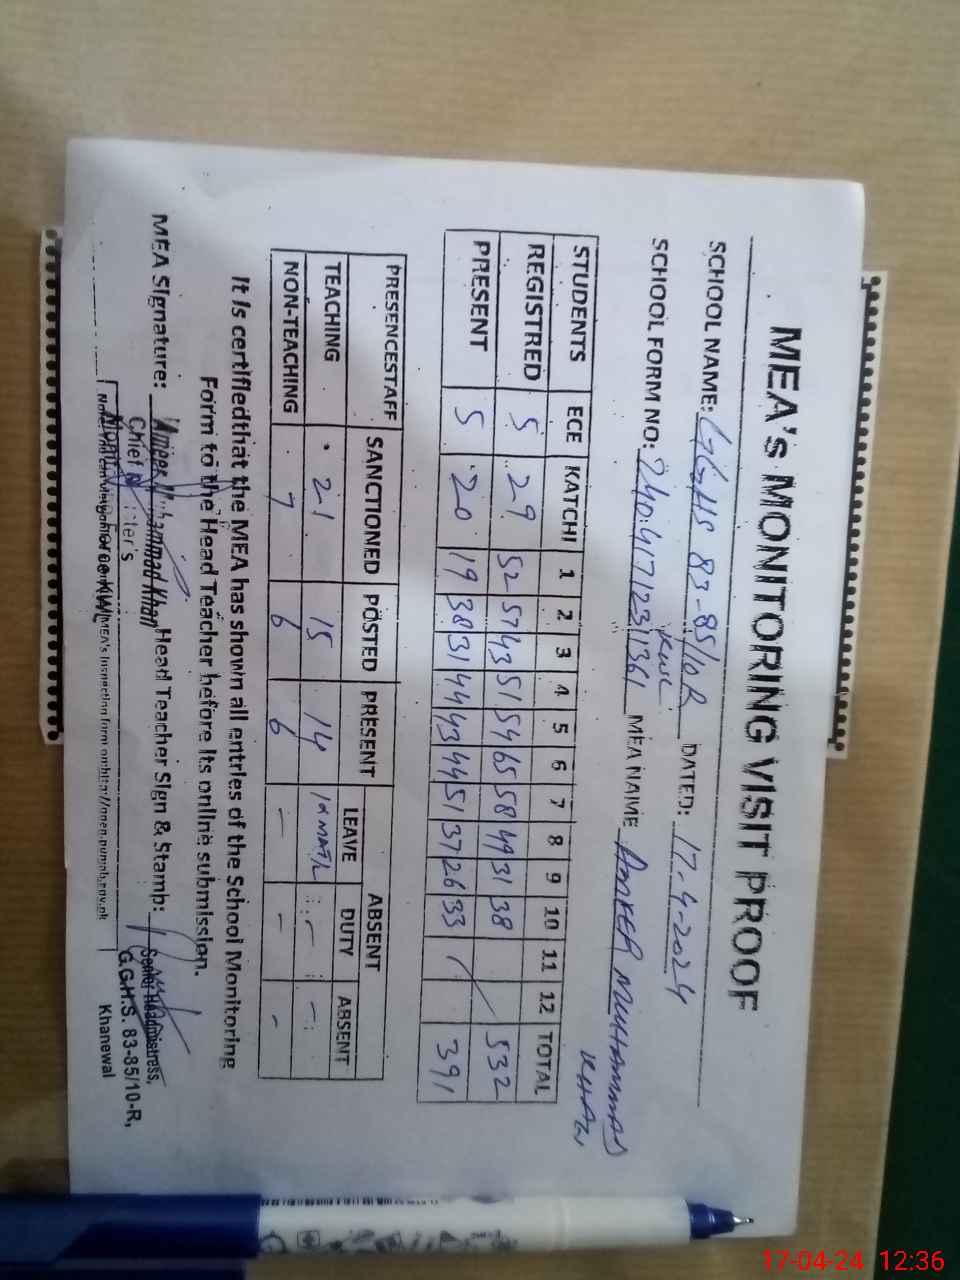 MEA's MONITORING VISIT PROOF
SCHOOL NAME: GGHS 83-85/10R KWL DATED: 17-4-2024
SCHOOL FORM NO: MEA NAME AMEER MUHAMMAD KHAN
STUDENTS ECE KATCHI 1 2 3 4 5 6 7 8 9 10 11 12 TOTAL
REGISTRED 5 29 52 57 43 51 54 65 58 49 31 38 532
PRESENT 5 20 19 38 31 44 43 44 51 37 26 33 391
PRESENCESTAFF SANCTIONED POSTED PRESENT ABSENT
LEAVE DUTY ABSENT
TEACHING 21 15 14 - -
NON-TEACHING 7 6 6 - - -
It is certifiedthat the MEA has shown all entries of the School Monitoring
Form to the Head Teacher before its online submission.
MEA Signature: Ameer Muhammad Khan Head Teacher Sign & Stamp:
Chief
Senior Headmistress,
G.G.H.S. 83-85/10-R,
Khanewal
17-04-24 12:36